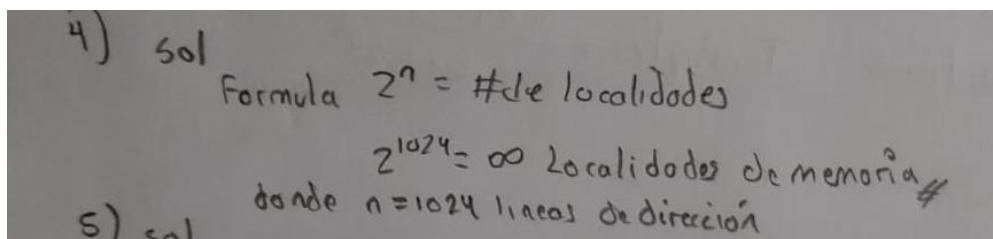 4) sol
Formula 2^n = #de localidades
2^1024 = ∞ Localidades de memoria
donde n = 1024 lineas de dirección
5) sol